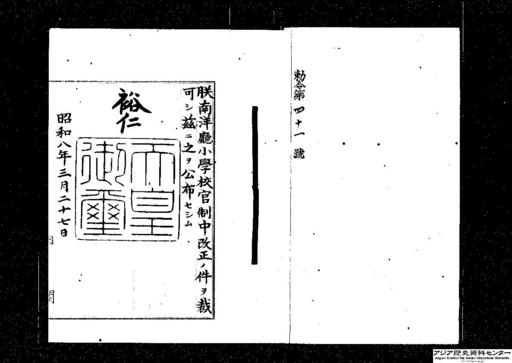 勅令第四十一號
朕南洋廳小學校官制中改正ノ件ヲ裁
可シ茲ニ之ヲ公布セシム
裕仁
天皇御璽
昭和八年三月二十七日
アジア歴史資料センター
Japan Center for Asian Historical Records